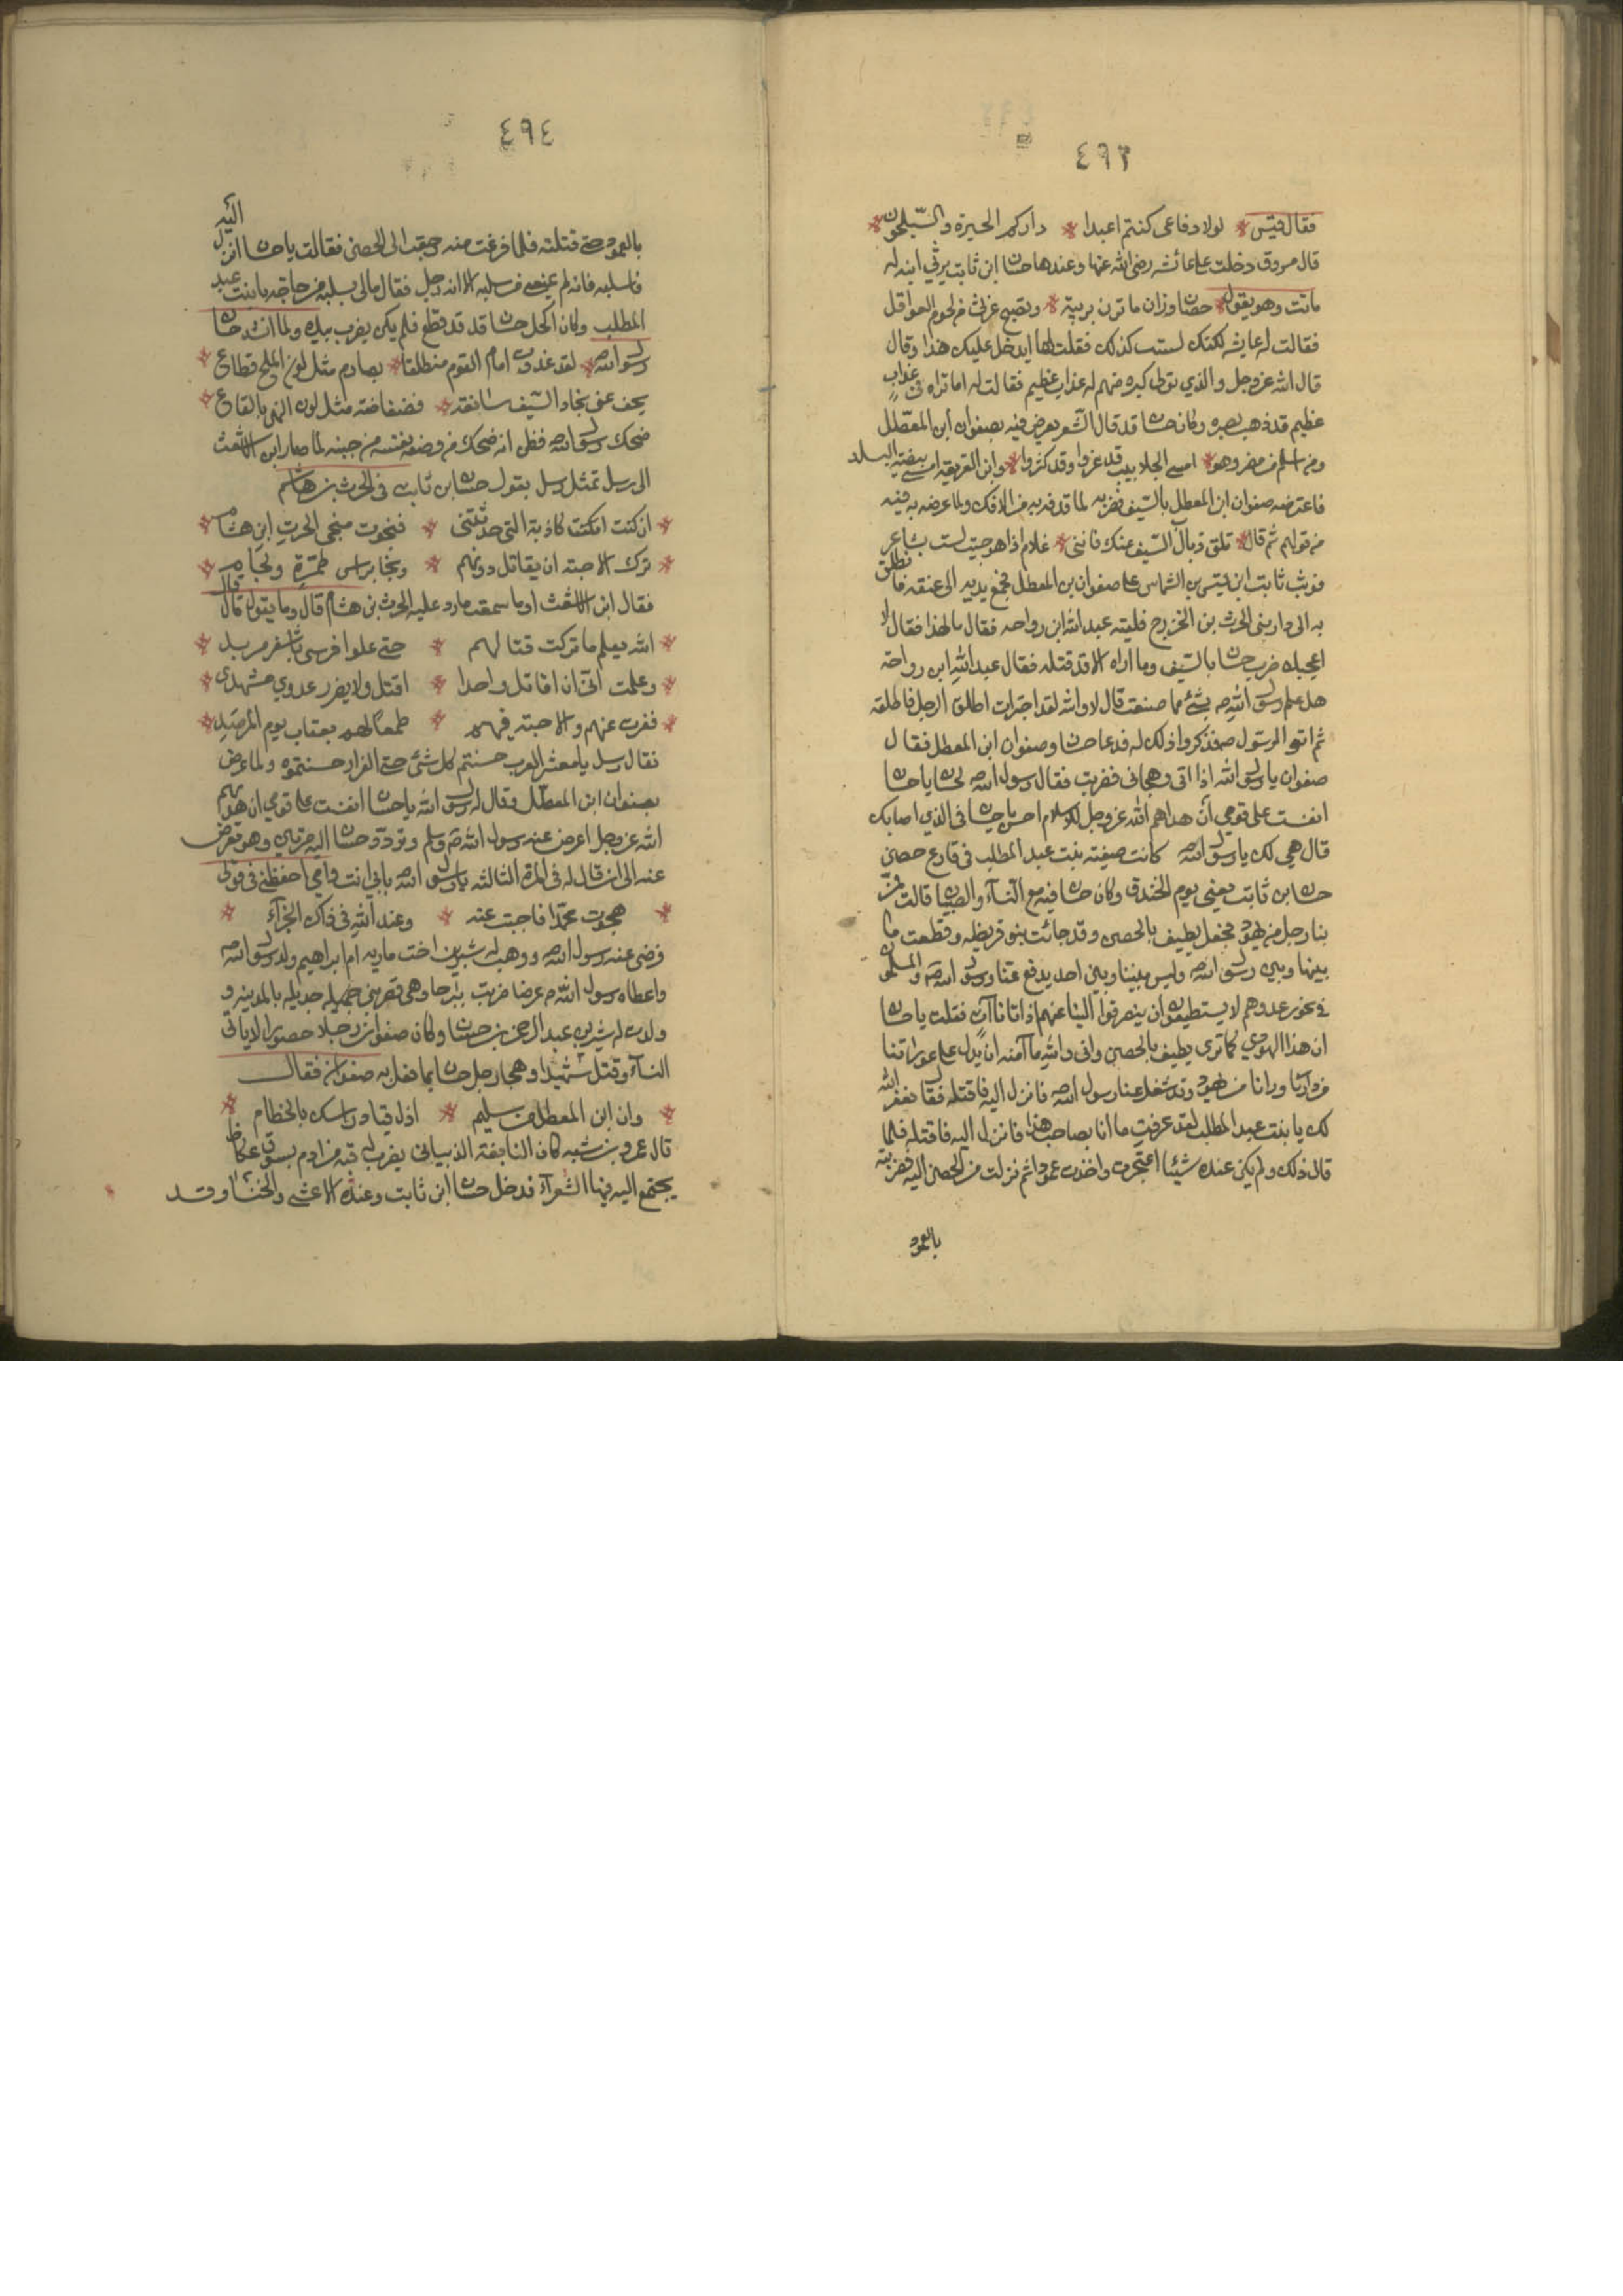 ٤٩٣
فقال قيس * لولا دفاعى كنتم اعبدا * داركم الحيرة والسيلحون *
قال مسروق دخلت على عائشه رضى الله عنها وعندها حسان ابن ثابت يرثي ابنه له
ماتت وهو يقول * حصان رزان ما تزن بريبة * وتصبح غرثى من لحوم الغوافل
فقالت له عايشه لكنك لست كذلك فقلت لها ايدخل عليك هذا وقال
قال الله عز وجل والذي تولى كبره منهم له عذاب عظيم فقالت له اما تراه فى عذاب
عظيم قد ذهب بصره وكان حسان قد قال الشعر يعرض فيه بصفوان ابن المعطل
ومن اسلم من مضر وهو * امسى الجلابيب قد عزوا وقد كثروا * وابن الفريعة امسى بيضة البلد
فاعترضه صفوان ابن المعطل بالسيف فضربه لما قذفه به من الافك ولما عرضه به فيه
من قوله ثم قال * تلق ذباب السيف عنك فاننى * غلام اذا هوجيت لست بشاعر
فوثب ثابت ابن قيس بن الشماس على صفوان بن المعطل فجمع يديه الى عنقه فانطلق
به الى دار بنى الحرث بن الخزرج فلقيه عبد الله ابن رواحه فقال ما هذا فقال الا
اعجبك ضرب حسان بالسيف وما اراه الا قد قتله فقال عبد الله ابن رواحة
هل علم رسول الله صـ بشئ مما صنعت قال لا والله لقد اجترات اطلق الرجل فاطلقه
ثم اتوا الرسول صـ فذكروا ذلك له فدعا حسان وصفوان ابن المعطل فقال
صفوان يا رسول الله اذانى وهجانى فضربته فقال رسول الله صـ لحسان يا حسان
اتفست على قومي ان هداهم الله عز وجل للاسلام احسن يا حسان فى الذي اصابك
قال هي لك يا رسول الله صـ كانت صفية بنت عبد المطلب فى فارع حصن
حسان بن ثابت يعني يوم الخندق وكان حسان فيه مع النسآء والصبيان قالت فمر
بنا رجل من يهود فجعل يطيف بالحصن وقد حاربت بنو قريظه وقطعت ما
بينها وبين رسول الله صـ وليس بيننا وبين احد يدفع عنا ورسول الله صـ والمسلمون
فى نحور عدوهم لا يستطيعون ان ينصرفوا الينا عنهم اذ اتانا آت فقلت يا حسان
ان هذا اليهودي كما ترى يطيف بالحصن وانى والله ما آمنه ان يدل على عوراتنا
من ورائنا من يهود وقد شغل عنا رسول الله صـ فانزل اليه فاقتله فقال يغفر الله
لك يا بنت عبد المطلب لقد عرفت ما انا بصاحب هذا فانزل اليه فاقتله فلما
قال ذلك ولم يكن عنده شيئا اعتجرت واخذت عمودا ثم نزلت من الحصن اليه فضربته
بالعمود
٤٩٤
بالعمود حتى قتلته فلما فرغت منه رجعت الى الحصن فقالت يا حسان انزل اليه
فاسلبه فانه لم يمنعني من سلبه الا انه رجل فقال مالى بسلبه من حاجه يا بنت عبد
المطلب وكان اكحل حسان قد قطع فلم يكن يضرب بيده ولما انشد حسان
رسول الله صـ * لقد غدوت امام القوم منتطقا * بصارم مثل لون الملح قطاع *
يحفز عنى نجاد السيف سابغة * فضفاضة مثل لون النهى بالقاع *
ضحك رسول الله صـ فظن انه ضحك من وصفه نفسه مع جبنه لما صار ابن الاشعث
الى رتبيل تمثل رتبيل بقول حسان بن ثابت فى الحرث بن هشام
* ان كنت كاذبة التى حدثتنى * فنجوت منجى الحرث ابن هشام *
* ترك الاحبة ان يقاتل دونهم * ونجا براس طمرة ولجام *
فقال ابن الاشعث اوما سمعت ما رد عليه الحرث بن هشام قال وما يقول قال قال
* الله يعلم ما تركت قتالهم * حتى علوا فرسى باشقر مزبد *
* وعلمت انى ان اقاتل واحدا * اقتل ولا يضرر عدوي مشهدى *
* ففررت عنهم والاحبة فيهم * طمعا لهم بعقاب يوم المرصد *
فقال رتبيل يا معشر العرب حسنتم كل شئ حتى الفرار حسنتموه ولما عرض
بصفوان ابن المعطل وقال له رسول الله يا حسان اتفست على قومي ان هداهم
الله عز وجل اعرض عنه رسول الله صـ وسلم وتودد حسان اليه مرتين وهو معرض
عنه الى ان قال له فى المرة الثالثه يا رسول الله صـ بابي انت وامي احفظنى فى قولى
* هجوت محمدا فاجبت عنه * وعند الله فى ذاك الجزآء *
فرضى عنه رسول الله صـ ووهب له شيرين اخت ماريه ام ابراهيم ولد رسول الله صـ
واعطاه رسول الله صـ عوضا من ضربته بيرحا وهى قصر بنى جديله بالمدينه و
ولدت له شيرين عبد الرحمن بن حسان وكان صفوان رجلا حصورا لا ياتى
النسآء وقتل شهيدا وهجا رجل حسان بما فعل به صفوان فقال
* وان ابن المعطل من سليم * اذل قياد راسك بالخطام *
قال عمرو بن شبه كان النابغة الذبيانى يضرب له قبه من ادم بسوق عكاظ
يجتمع اليه فيها الشعرآء فدخل حسان ابن ثابت وعنده الاعشى والخنساء وقد